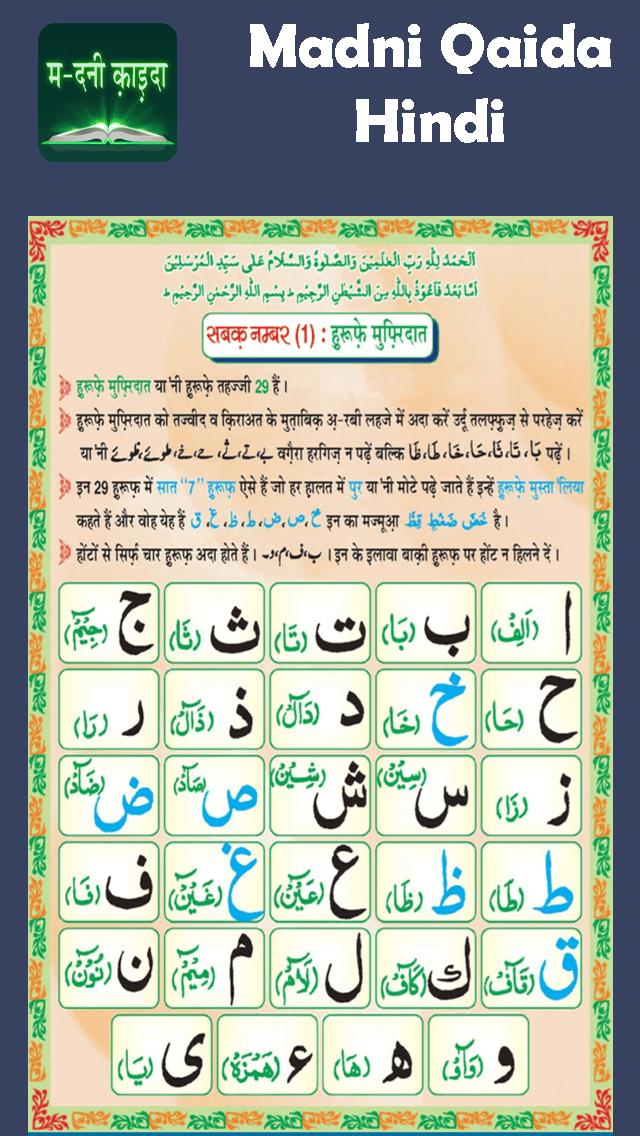 म-दनी क़ाइदा
Madni Qaida
Hindi
اَلْحَمْدُ لِلّٰهِ رَبِّ الْعٰلَمِيْنَ وَالصَّلٰوةُ وَالسَّلَامُ عَلٰى سَيِّدِ الْمُرْسَلِيْنَ
اَمَّا بَعْدُ فَاَعُوْذُ بِاللّٰهِ مِنَ الشَّيْطٰنِ الرَّجِيْمِ ط بِسْمِ اللّٰهِ الرَّحْمٰنِ الرَّحِيْمِ ط
सबक़ नम्बर (1) : हुरूफ़े मुफ़िरदात
हुरूफ़े मुफ़िरदात या'नी हुरूफ़े तहज्जी 29 हैं।
हुरूफ़े मुफ़िरदात को तज्वीद व क़िराअत के मुत़ाबिक़ अ़-रबी लहजे में अदा करें उर्दू तलफ़्फ़ुज़ से परहेज़ करें
या'नी بے،تے،ثے،حے،خے،طوئے،ظوئے वग़ैरा हरगिज़ न पढ़ें बल्कि بَا، تَا، ثَا، حَا، خَا، طَا، ظَا पढ़ें।
इन 29 हुरूफ़ में सात "7" हुरूफ़ ऐसे हैं जो हर हालत में पुर या'नी मोटे पढ़े जाते हैं इन्हें हुरूफ़े मुस्ता'लिया
कहते हैं और वोह येह हैं خ،ص،ض،ط،ظ،غ،ق इन का मज्मूआ خُصَّ ضَغْطٍ قِظْ है।
होंटों से सिर्फ़ चार हुरूफ़ अदा होते हैं। ب،ف،م،و۔ । इन के इलावा बाक़ी हुरूफ़ पर होंट न हिलने दें।
ا (اَلِفْ) ب (بَا) ت (تَا) ث (ثَا) ج (جِيْمْ)
ح (حَا) خ (خَا) د (دَالْ) ذ (ذَالْ) ر (رَا)
ز (زَا) س (سِيْنْ) ش (شِيْنْ) ص (صَادْ) ض (ضَادْ)
ط (طَا) ظ (ظَا) ع (عَيْنْ) غ (غَيْنْ) ف (فَا)
ق (قَافْ) ك (كَافْ) ل (لَامْ) م (مِيْمْ) ن (نُوْنْ)
و (وَاوْ) ھ (هَا) ء (هَمْزَهْ) ی (يَا)